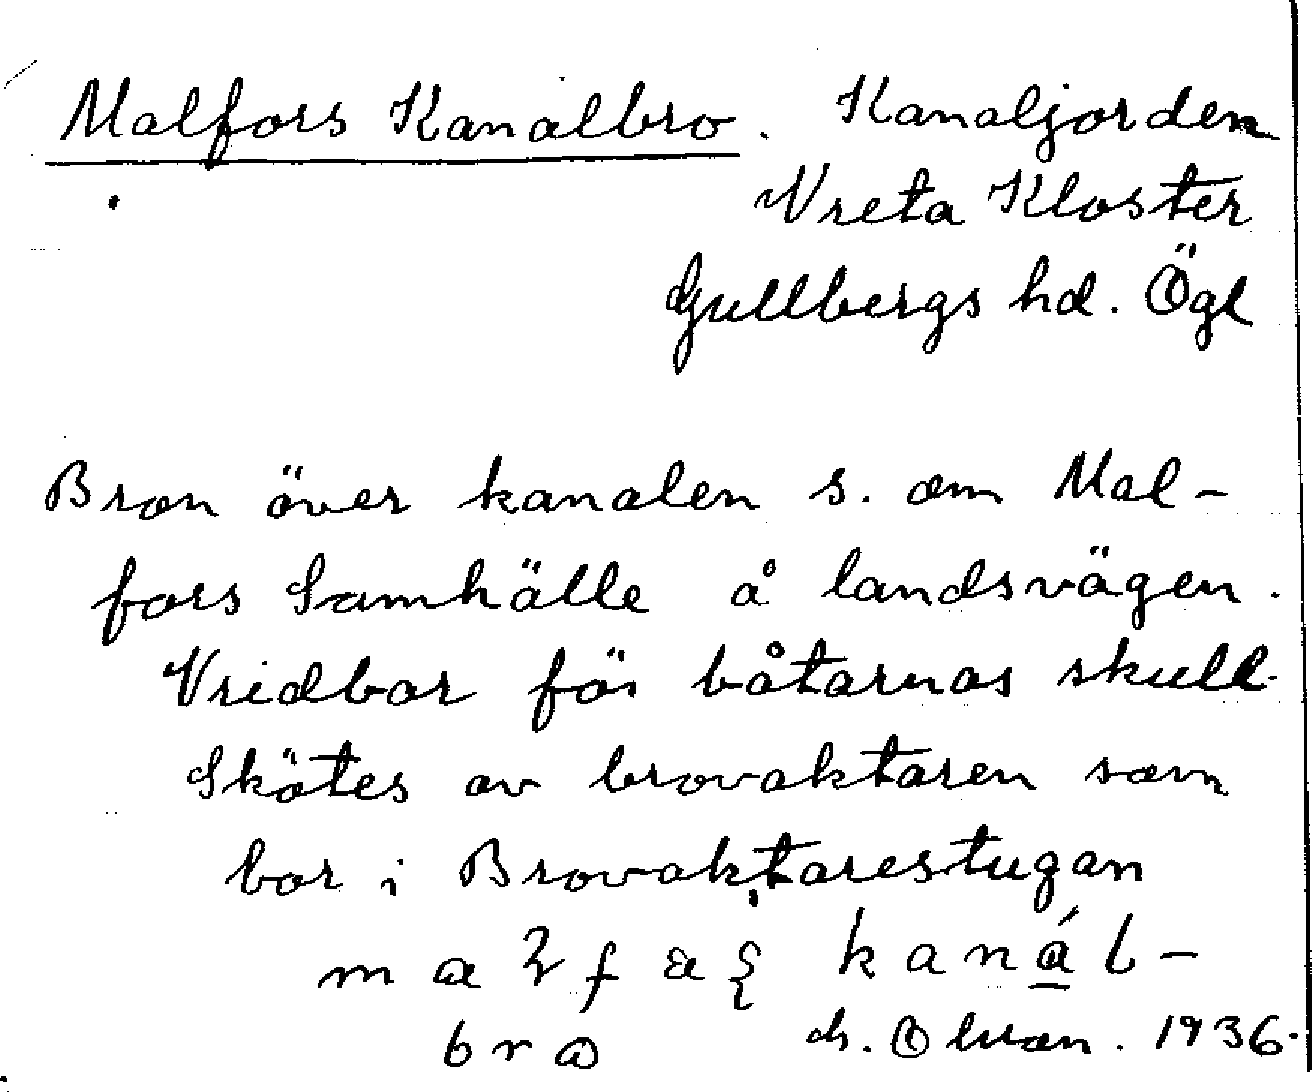 Malfors Kanalbro. Kanaljorden
Vreta Kloster
Gullbergs hd. Ögl
Bron över kanalen s. om Mal-
fors Samhälle å landsvägen.
Vridbar för båtarnas skull.
Skötes av brovaktaren som
bor i Brovaktarestugan
kanál-
1936.